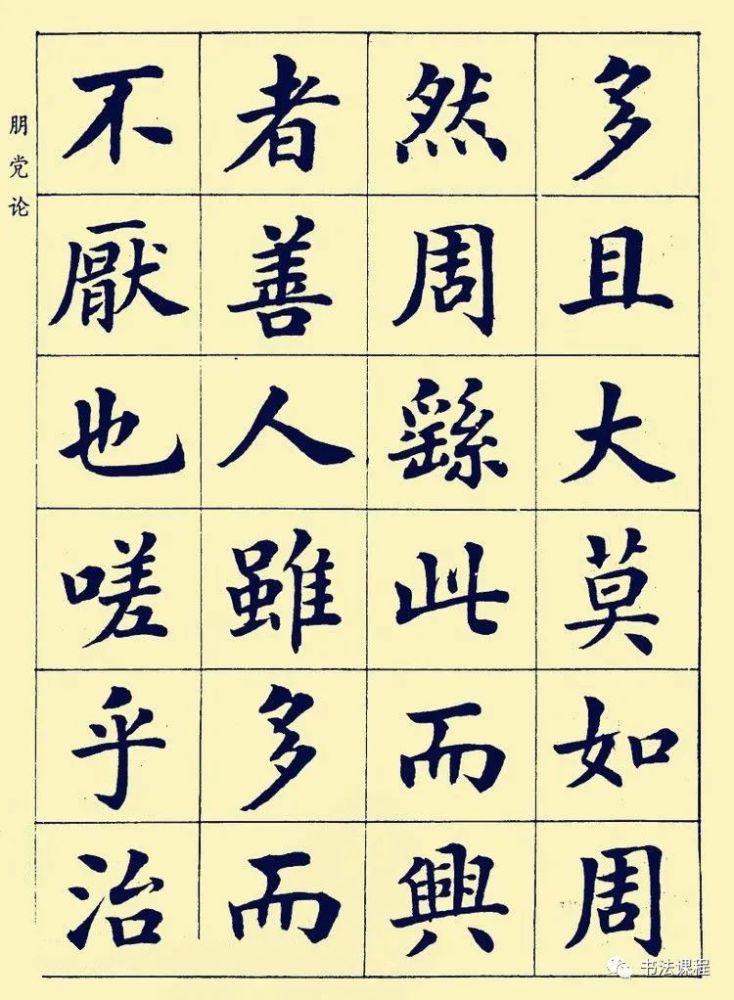 多且大莫如周
然周繇此而興
者善人雖多而
不厭也嗟乎治
朋党论
书法课程